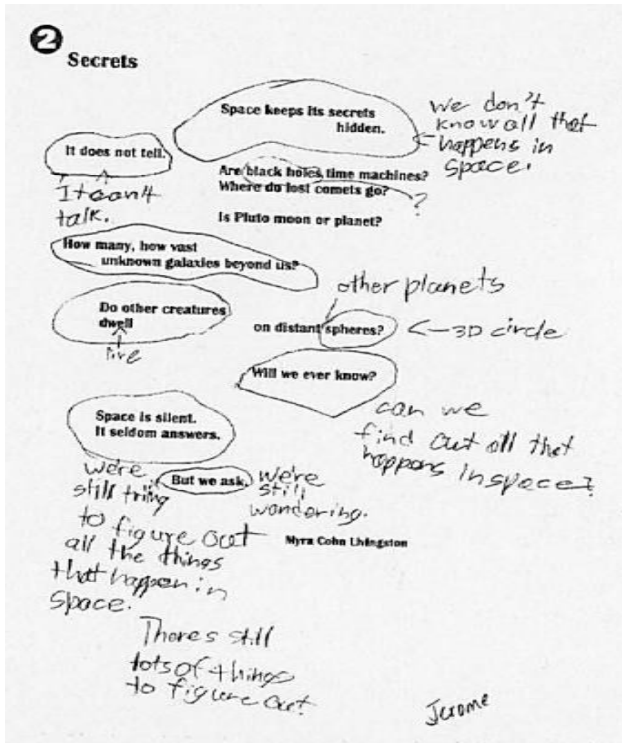 2
Secrets
Space keeps its secrets
hidden.
we don't
know all that
happens in
space.
It does not tell.
It can't
talk.
Are black holes time machines?
Where do lost comets go?
?
Is Pluto moon or planet?
How many, how vast
unknown galaxies beyond us?
other planets
Do other creatures
dwell
live
on distant spheres?
<-3D circle
Will we ever know?
can we
find out all that
happens in space?
Space is silent.
It seldom answers.
But we ask.
we're
still triing
to figure out
all the things
that happen in
space.
we're
still
wondering.
Myra Cohn Livingston
There's still
lots of things
to figure out.
Jerome